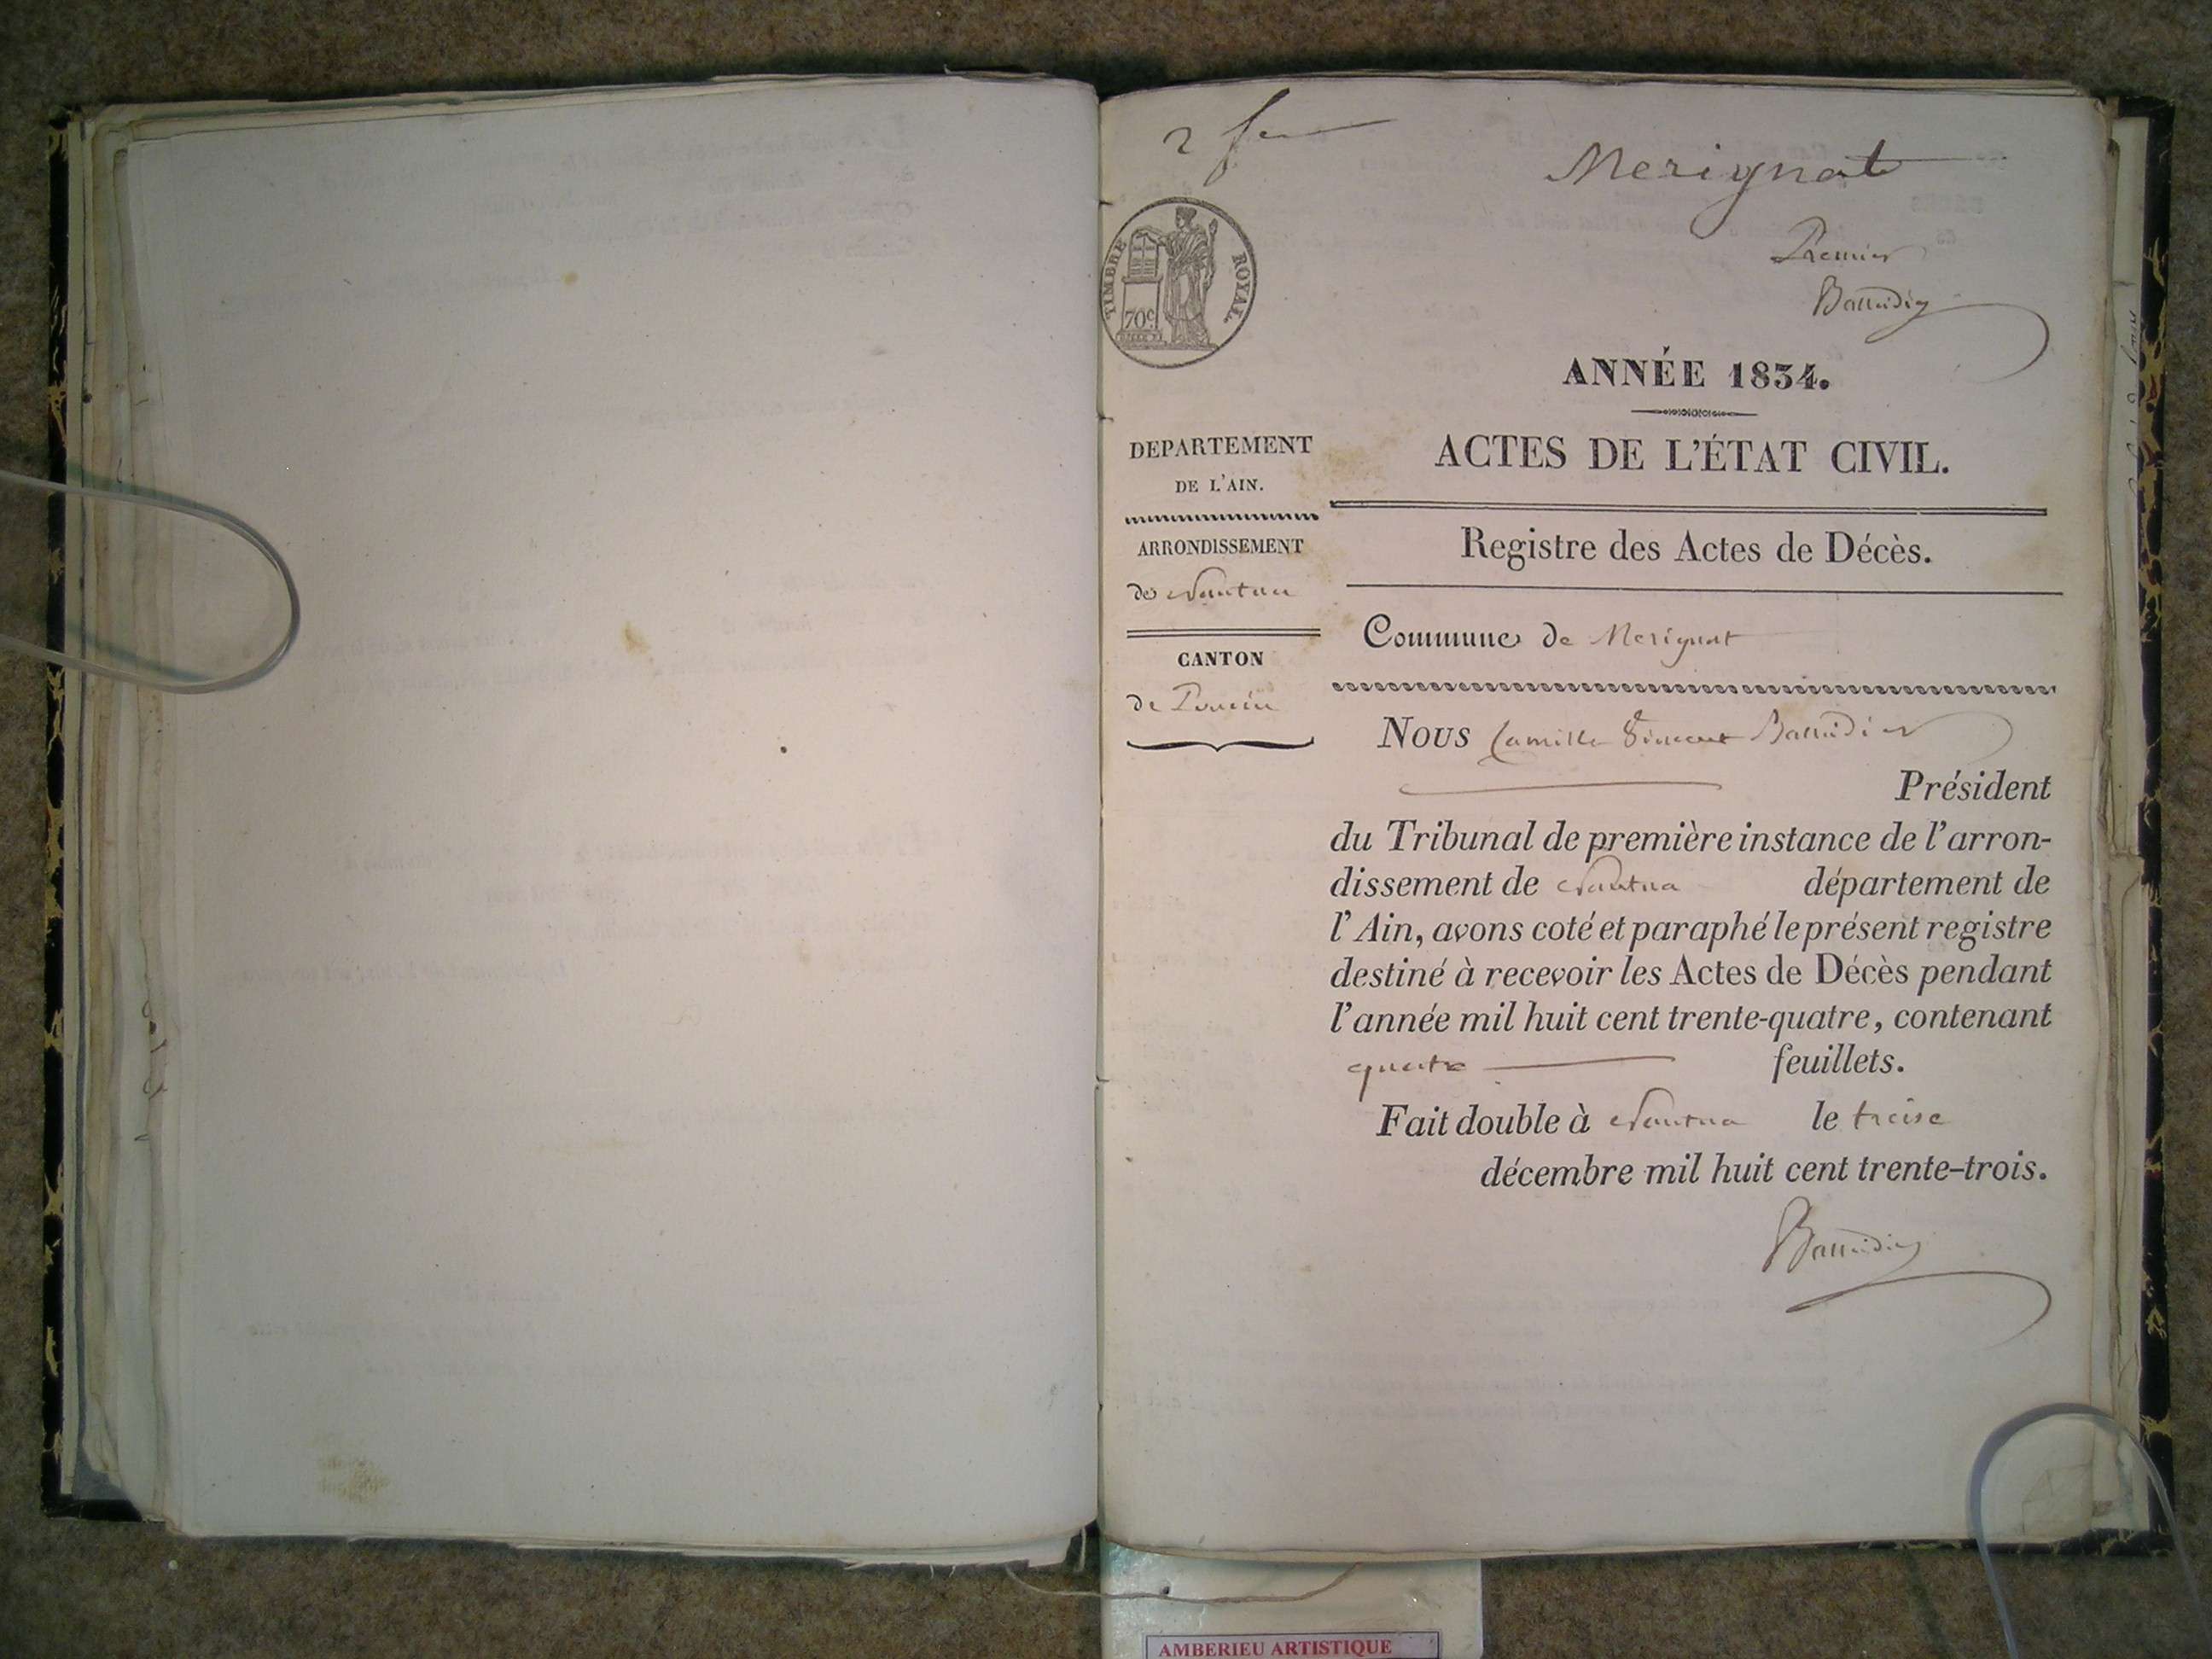 2 f
Merignat
Premier
TIMBRE ROYAL
70c
ANNÉE 1834.
ACTES DE L'ÉTAT CIVIL.
DEPARTEMENT
DE L'AIN.
ARRONDISSEMENT
de Nantua
CANTON
de Poncin
Registre des Actes de Décès.
Commune de Merignat
Nous Camille Vincent
Président
du Tribunal de première instance de l'arron-
dissement de Nantua département de
l'Ain, avons coté et paraphé le présent registre
destiné à recevoir les Actes de Décès pendant
l'année mil huit cent trente-quatre, contenant
quatre feuillets.
Fait double à Nantua le treise
décembre mil huit cent trente-trois.
AMBERIEU ARTISTIQUE